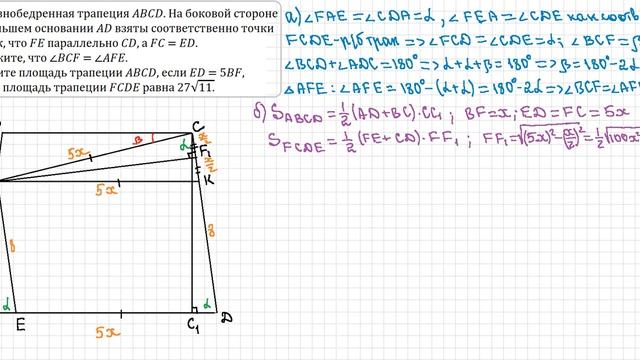 внобедренная трапеция ABCD. На боковой стороне
ьшем основании AD взяты соответственно точки
к, что FE параллельно CD, а FC = ED.
ките, что ∠BCF = ∠AFE.
ите площадь трапеции ABCD, если ED = 5BF,
площадь трапеции FCDE равна 27√11.
а) ∠FAE = ∠CDA = α, ∠FEA = ∠CDE как соотв
FCDE - р/б трап => ∠FCD = ∠CDE = α; ∠BCF = β
∠BCD + ∠ADC = 180° => α + α + β = 180° => β = 180° - 2α
△AFE: ∠AFE = 180° - (α + α) = 180° - 2α => ∠BCF = ∠AF
б) S ABCD = 1/2 (AD + BC) · CC₁ ; BF = x; ED = FC = 5x
S FCDE = 1/2 (FE + CD) · FF₁ ; FF₁ = √((5x)² - (x/2)²) = 1/2 √100x²
C
5x
β
α
x/2
F₁
x/2
K
5x
8
8
α
E
5x
C₁
α
D